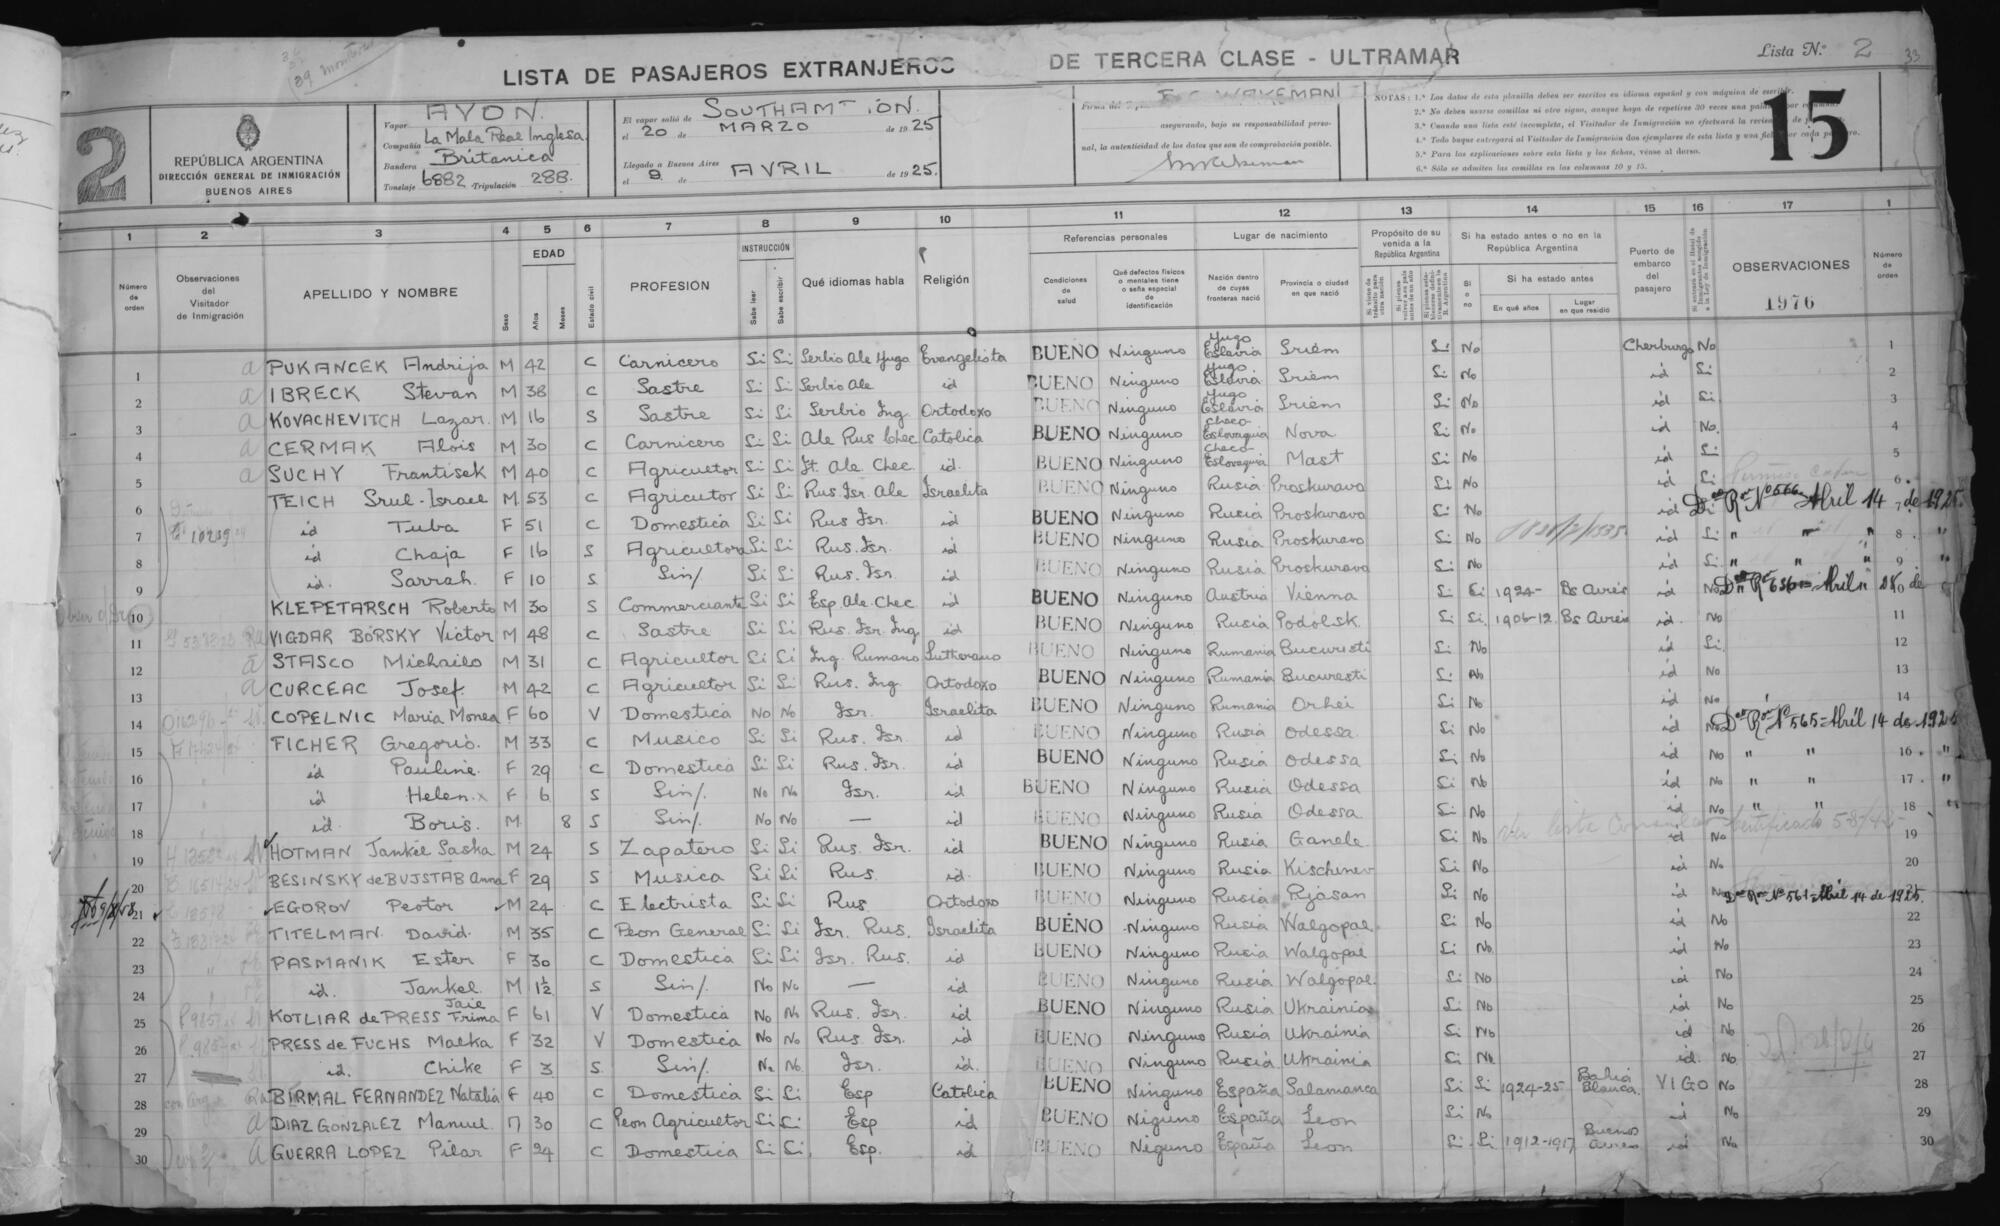 LISTA DE PASAJEROS EXTRANJEROS DE TERCERA CLASE - ULTRAMAR
Lista N.º 2 33
2
REPÚBLICA ARGENTINA
DIRECCIÓN GENERAL DE INMIGRACIÓN
BUENOS AIRES
Vapor AVON.
Compañía La Mala Real Inglesa.
Bandera Britanica
Tonelaje 6882 Tripulación 288.
El vapor salió de SOUTHAMTION.
el 20 de MARZO de 1925
Llegado a Buenos Aires
el 9. de AVRIL de 1925.
WAKEMAN
asegurando, bajo su responsabilidad perso-
nal, la autenticidad de los datos que son de comprobación posible.
NOTAS: 1.ª Los datos de esta planilla deben ser escritos en idioma español y con máquina de escribir.
2.ª No deben usarse comillas ni otro signo, aunque haya de repetirse 30 veces una
3.ª Cuando una lista esté incompleta, el Visitador de Inmigración no efectuará la
4.ª Todo buque entregará al Visitador de Inmigración dos ejemplares de esta lista y una
5.ª Para las explicaciones sobre esta lista y las fichas, véase al dorso.
6.ª Sólo se admiten las comillas en las columnas 10 y 15.
15
1 2 3 4 5 6 7 8 9 10 11 12 13 14 15 16 17 1
Número de orden
Observaciones del Visitador de Inmigración
APELLIDO Y NOMBRE
Sexo
EDAD
Años
Meses
Estado civil
PROFESIÓN
INSTRUCCIÓN
Sabe leer
Sabe escribir
Qué idiomas habla
Religión
Referencias personales
Condiciones de salud
Qué defectos físicos o mentales tiene o seña especial de identificación
Lugar de nacimiento
Nación dentro de cuyas fronteras nació
Provincia o ciudad en que nació
Propósito de su venida a la República Argentina
Si viene de tránsito para otra nación
Si ha estado antes o no en la República Argentina
Si o no
Si ha estado antes
En qué años
Lugar en que residió
Puerto de embarco del pasajero
OBSERVACIONES
1976
Número de orden
1 a PUKANCEK Andrija M 42 C Carnicero Si Si Serbio Ale Yugo Evangelista BUENO Ninguno Yugo Eslavia Sriem Si No Cherburgo No 1
2 a IBRECK Stevan M 38 C Sastre Si Si Serbio Ale id BUENO Ninguno Yugo Eslavia Sriem Si No id Si 2
3 a KOVACHEVITCH Lazar. M 16 S Sastre Si Si Serbio Ing. Ortodoxo BUENO Ninguno Yugo Eslavia Sriem Si No id Si. 3
4 a CERMAK Alois M 30 C Carnicero Si Si Ale Rus Chec Catolica BUENO Ninguno Checo Eslovaquia Nova Si No id No. 4
5 a SUCHY Frantisek M 40 C Agricultor Si Si It. Ale. Chec. id. BUENO Ninguno Checo Eslovaquia Mast Si No id Si 5
6 TEICH Srul-Israel M 53 C Agricutor Si Si Rus. Isr. Ale Israelita BUENO Ninguno Rusia Proskurava Si No id Si 6
7 id Tuba F 51 C Domestica Si Si Rus Isr. id BUENO Ninguno Rusia Proskurava Si No id Si Nº 566 Abril 14 de 1925. 7
8 id Chaja F 16 S Agricultora Si Si Rus. Isr. id BUENO Ninguno Rusia Proskurava Si No id Si " " " 8 "
9 id. Sarrah. F 10 S Sin/. Si Si Rus. Isr. id BUENO Ninguno Rusia Proskurava Si No id Si " " " 9 "
10 KLEPETARSCH Roberto M 30 S Commerciante Si Si Esp. Ale. Chec id BUENO Ninguno Austria Vienna Si Si 1924- Bs Avres id No 10
11 VIGDAR BORSKY Victor M 48 C Sastre Si Si Rus. Isr. Ing id BUENO Ninguno Rusia Podolsk. Si Si. 1906-12. Bs Avres id. No 11
12 a STASCO Michailo M 31 C Agricultor Si Si Ing. Rumano Lutherano BUENO Ninguno Rumania Bucuresti Si No id Si. 12
13 a CURCEAC Josef. M 42 C Agricultor Si Si Rus. Ing Ortodoxo BUENO Ninguno Rumania Bucuresti Si No id No 13
14 COPELNIC Maria Monea F 60 V Domestica No No Isr. Israelita BUENO Ninguno Rumania Orhei Si No id No 14
15 FICHER Gregorio. M 33 C Musico Si Si Rus. Isr. id BUENO Ninguno Rusia Odessa. Si No id No Nº 565 Abril 14 de 1925
16 id Pauline. F 29 C Domestica Si Si Rus. Isr. id BUENO Ninguno Rusia Odessa Si No id No " " 16 "
17 id Helen.x F 6 S Sin/. No No Isr. id BUENO Ninguno Rusia Odessa Si No id No " " 17 "
18 id. Boris. M 8 S Sin/. No No — id BUENO Ninguno Rusia Odessa Si No id No " " 18 "
19 HOTMAN Jankel Saska M 24 S Zapatero Si Si Rus. Isr. id BUENO Ninguno Rusia Ganele Si No id No 19
20 BESINSKY de BUJSTAB Anna F 29 S Musica Si Si Rus. id. BUENO Ninguno Rusia Kischenev Si No id No 20
21 EGOROV Peotor M 24 C Electrista Si Si Rus Ortodoxo BUENO Ninguno Rusia Rjasan Si No id No Nº 561 Abril 14 de 1925.
22 TITELMAN David. M 35 C Peon General Si Si Isr. Rus. Israelita BUENO Ninguno Rusia Walgopal Si No id No 22
23 PASMANIK Ester F 30 C Domestica Si Si Isr. Rus. id BUENO Ninguno Rusia Walgopal Si No. id No 23
24 id. Jankel. M 1½ S Sin/. No No — id BUENO Ninguno Rusia Walgopal. Si No id No 24
25 KOTLIAR de PRESS Jaie Frima F 61 V Domestica No No Rus. Isr. id BUENO Ninguno Rusia Ukrainia Si No id No 25
26 PRESS de FUCHS Malka F 32 V Domestica No No Rus. Isr. id BUENO Ninguno Rusia Ukrainia Si No id No 26
27 id. Chike F 3 S Sin/. No No. Isr. id. BUENO Ninguno Rusia Ukrainia Si No id. No 27
28 BIRMAL FERNANDEZ Natalia F 40 C Domestica Si Si Esp Catolica BUENO Ninguno España Salamanca Si Si 1924-25 Bahia Blanca. VIGO No 28
29 a DIAZ GONZALEZ Manuel M 30 C Peon Agricultor Si Si Esp id BUENO Niguno España Leon Si No id No 29
30 a GUERRA LOPEZ Pilar F 24 C Domestica Si Si. Esp. id BUENO Niguno España Leon Si Si 1912-1917 Buenos Avres id No 30